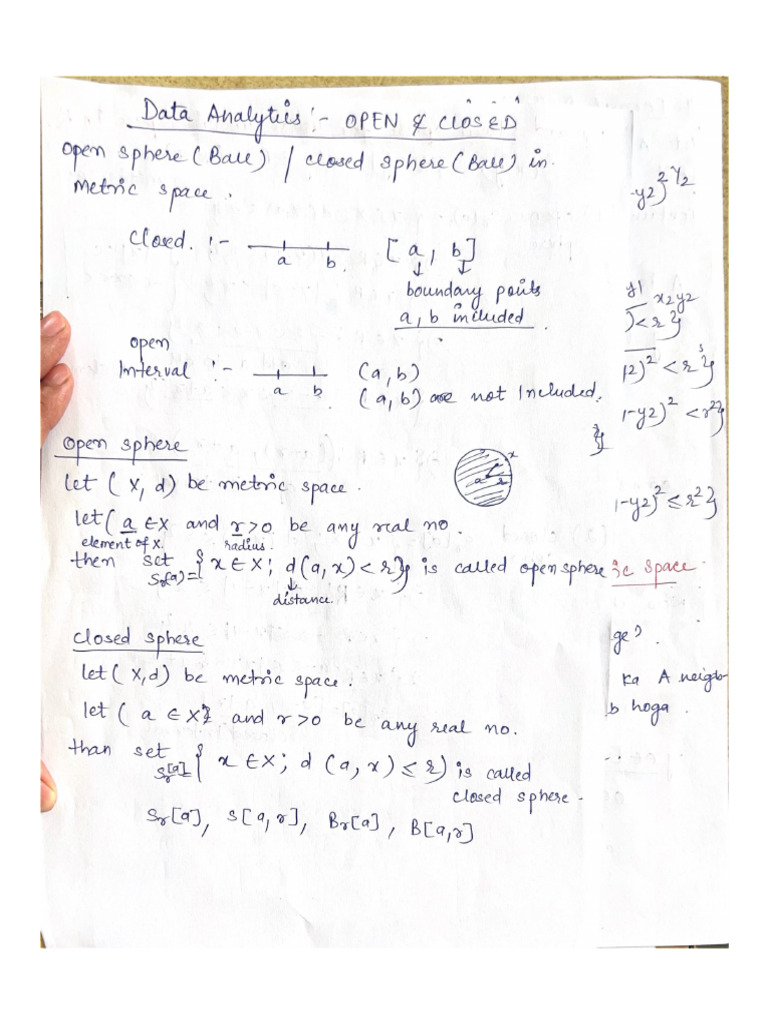 Data Analytics :- OPEN & CLOSED
Open sphere (Ball) / closed sphere (Ball) in
Metric space.
Closed. :- a b [a, b]
boundary points
a, b included.
open
Interval :- a b (a, b)
(a, b) are not Included.
Open sphere
a r x
let (X, d) be metric space.
let (a ∈X and r>0 be any real no.
element of X. radius.
then set Sr(a) = { x ∈ X; d(a, x) < r} is called open sphere
distance.
Closed sphere
let (X,d) be metric space.
let (a ∈ X} and r>0 be any real no.
than set Sr[a] = { x ∈X; d (a, x) ≤ r) is called
closed sphere -
Sr[a], S[a, r], Br[a], B[a,r]
-y2)² ½
y1
x2y2
)<r}
12)² < r}
1-y2)² <r²}
}
1-y2)² ≤ r²}
ic space.
ge?.
ka A neigb-
b hoga.